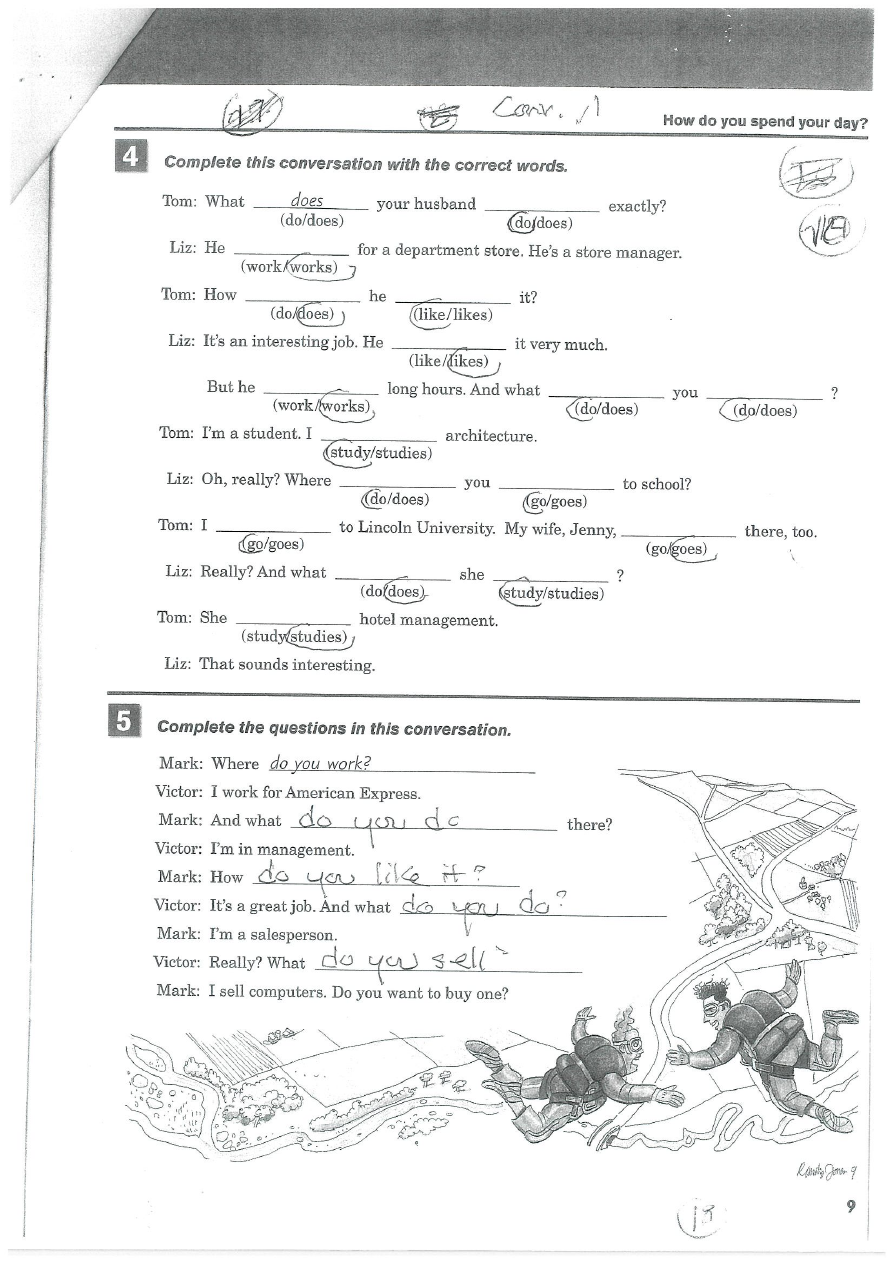 Conv.
How do you spend your day?
4 Complete this conversation with the correct words.
Tom: What does your husband ____________ exactly?
(do/does) (do/does)
Liz: He ____________ for a department store. He's a store manager.
(work/works)
Tom: How ____________ he ____________ it?
(do/does) (like/likes)
Liz: It's an interesting job. He ____________ it very much.
(like/likes)
But he ____________ long hours. And what ____________ you ____________ ?
(work/works) (do/does) (do/does)
Tom: I'm a student. I ____________ architecture.
(study/studies)
Liz: Oh, really? Where ____________ you ____________ to school?
(do/does) (go/goes)
Tom: I ____________ to Lincoln University. My wife, Jenny, ____________ there, too.
(go/goes) (go/goes)
Liz: Really? And what ____________ she ____________ ?
(do/does) (study/studies)
Tom: She ____________ hotel management.
(study/studies)
Liz: That sounds interesting.
5 Complete the questions in this conversation.
Mark: Where do you work?
Victor: I work for American Express.
Mark: And what do you do there?
Victor: I'm in management.
Mark: How do you like it?
Victor: It's a great job. And what do you do?
Mark: I'm a salesperson.
Victor: Really? What do you sell?
Mark: I sell computers. Do you want to buy one?
9